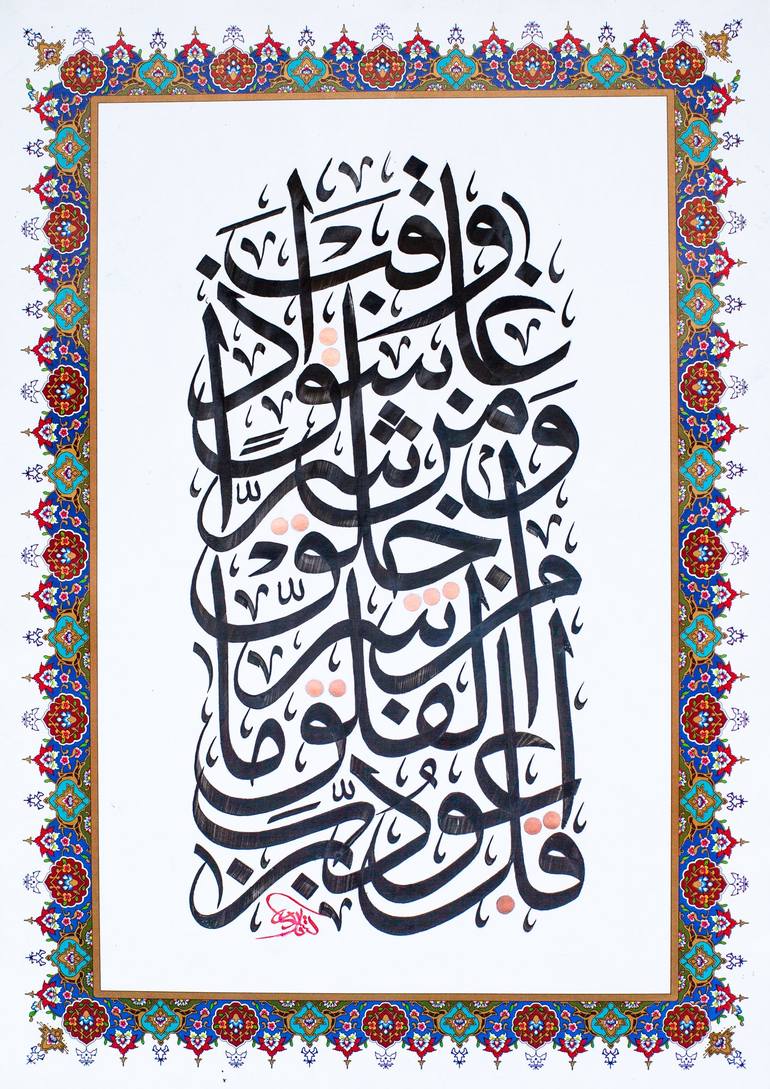 قُلْ أَعُوذُ بِرَبِّ
الْفَلَقِ مِنْ شَرِّ مَا
خَلَقَ وَمِنْ شَرِّ
غَاسِقٍ إِذَا وَقَبَ